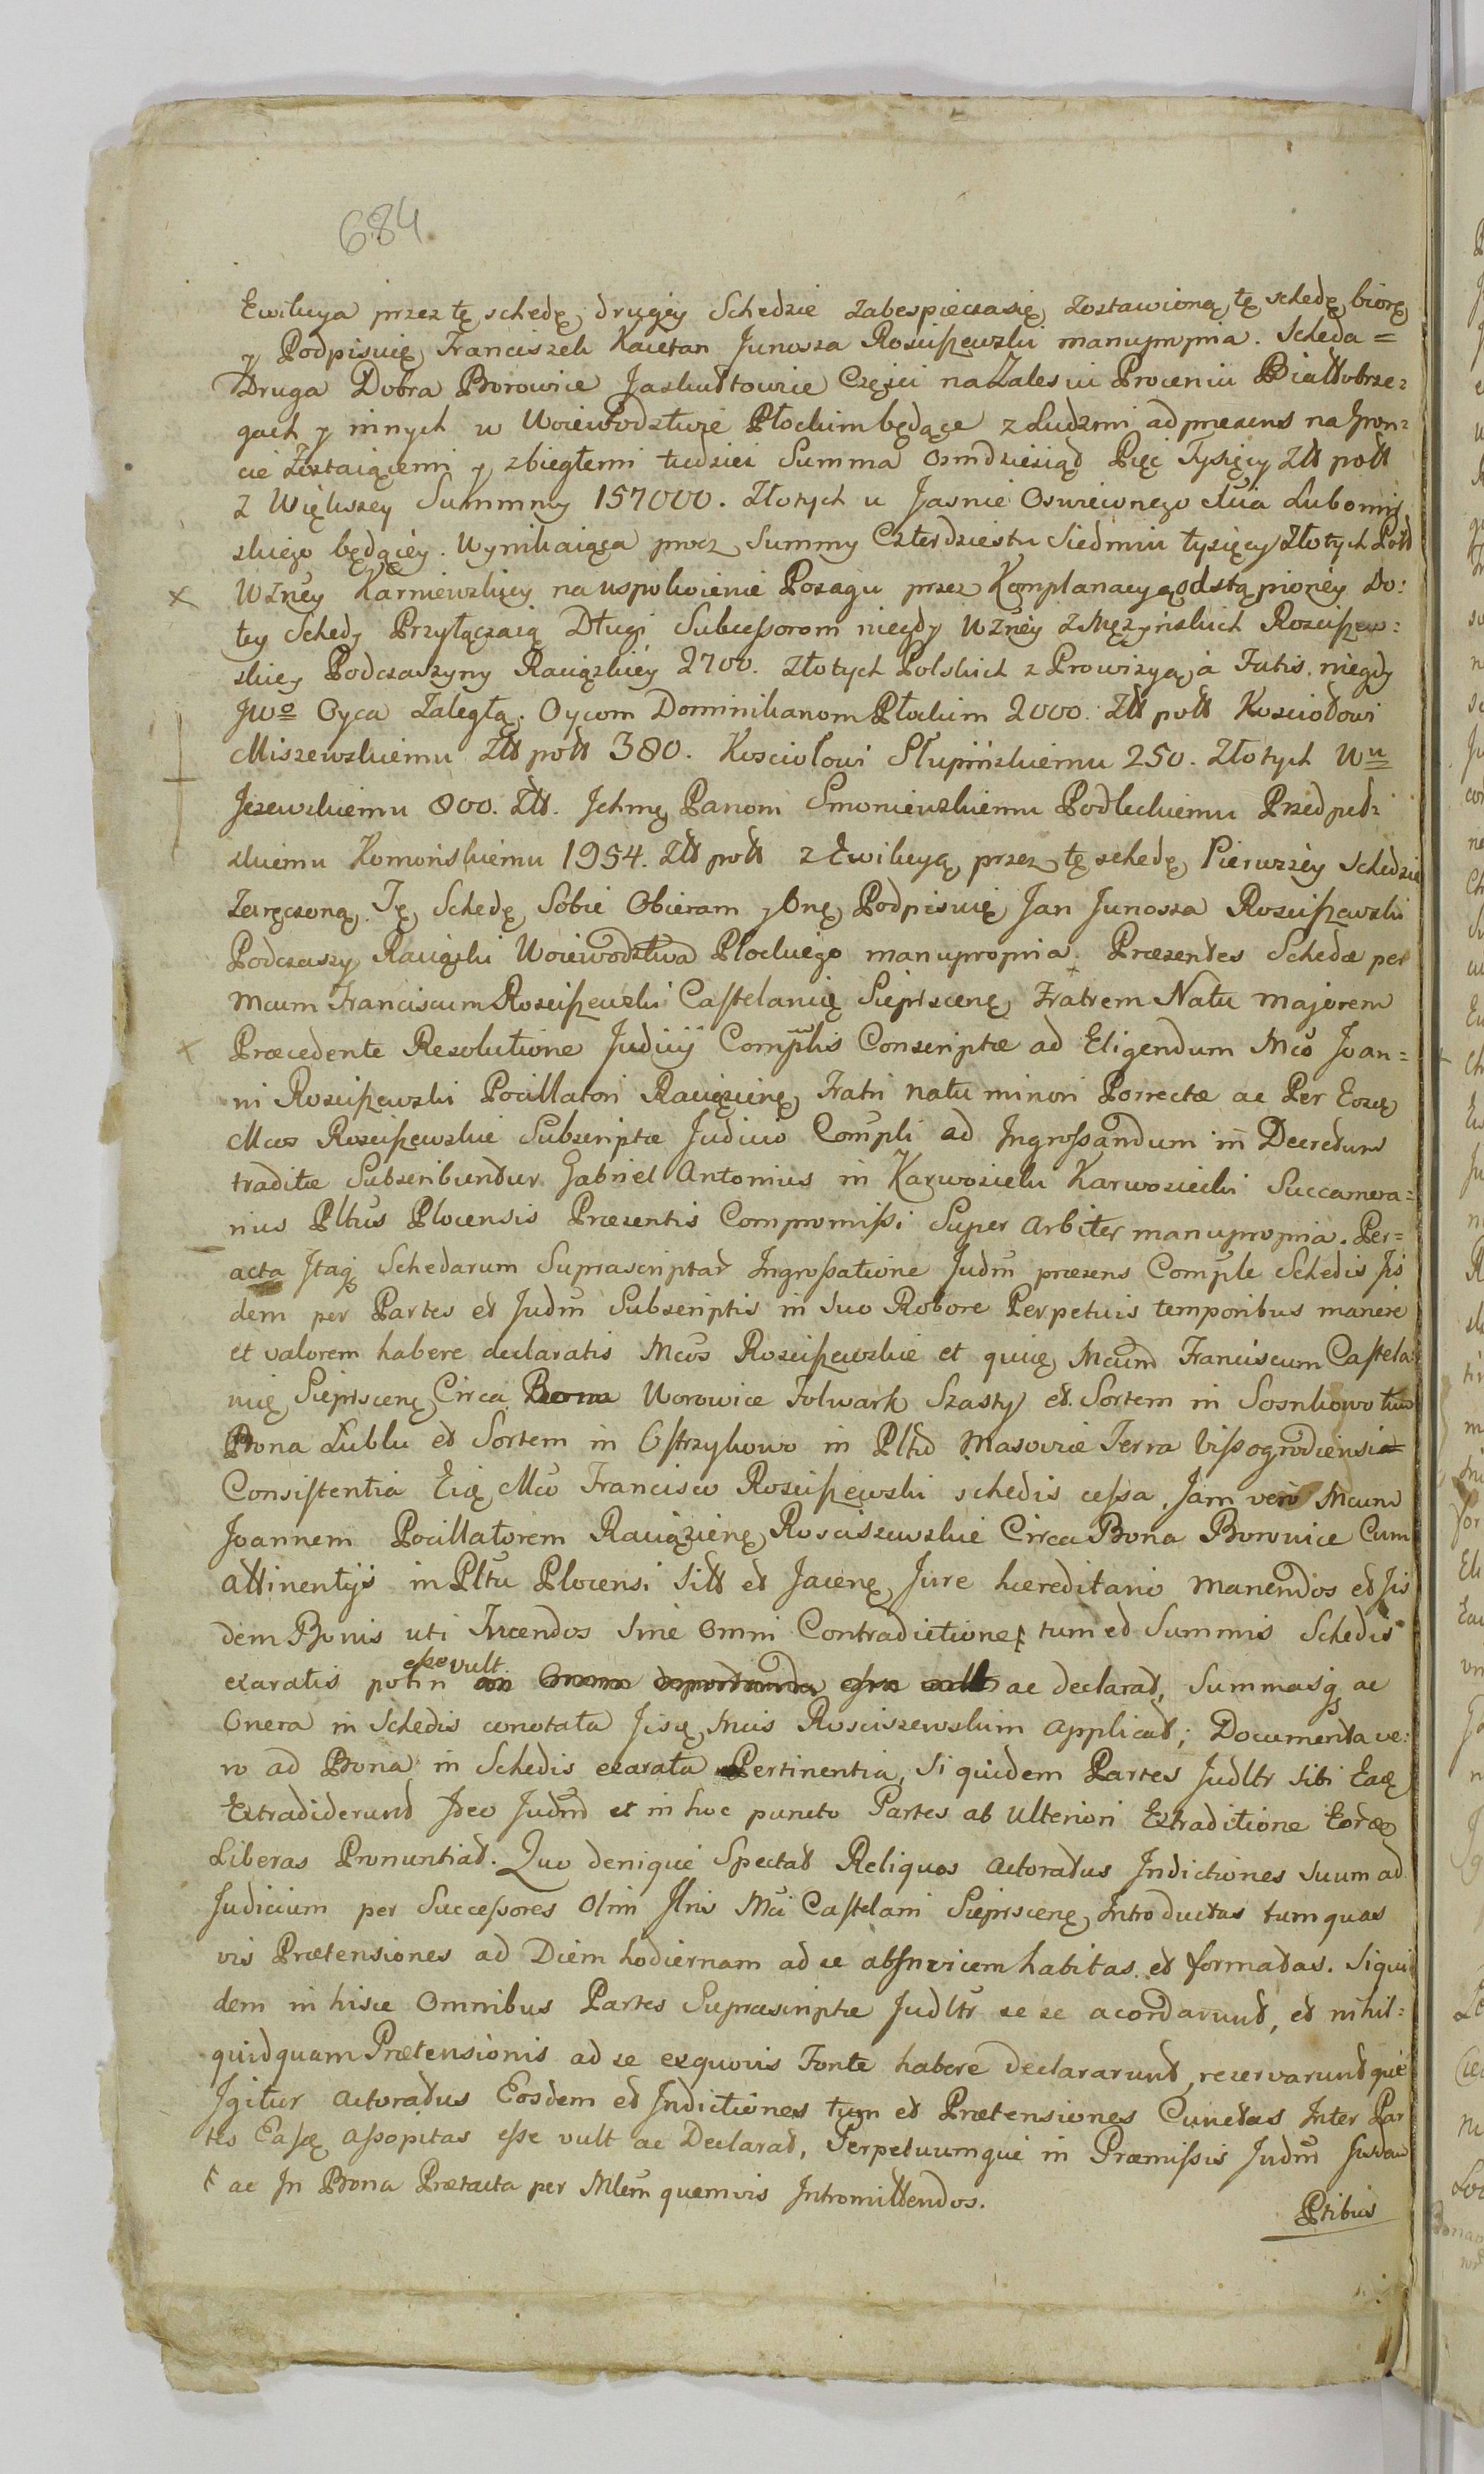 684
Ewikcya przez tę schedę drugiey Schedzie zabespieczasię zostawioną tę schedę biorę
y Podpisuię Franciszek Kaietan Junosza Rosciszewski manupropria. Scheda =
Druga Dobra Borowice Jaskułtowie Części na Zalesiu Proceniu Białłobrze=
gach y innych w Woiewodztwie Płockim będące z Ludzmi ad præsens na Gron=
cie Zostaiącemi y zbiegłemi tudziesz Summa Osmdziesiąd Pięć Tysięcy Złł pols
z Większey Summmy 157000. Złotych u Jasnie Oswieconego Xcia Lubomir
skiego będącey. Wynikaiąca procz Summy Czterdziestu Siedmiu tysięcy Złotych Pols
WJmcy Karniewskiey na uspokoienie Posagu przez Komplanacyą odstąpioney Do:
tey Schedy Przyłączaią Długi Sukcessorom niegdy WJmcy z Mężyńskich Roscisew=
skiey Podczaszyny Raciązkiey 2700. Złotych Polskich z Prowizyą á Fatis niegdy
JWo Oyca Zaległą. Oycom Dominikanom Płockim 2000. Złł pols Kosciołowi
Miszewskiemu Złł pols 380. Kosciołowi Słupińskiemu 250. Złotych Wu
Jezewskiemu 800. Złł. Jchmę Panom Smoniewskiemu Podleckiemu Przedpeł=
skiemu Komońskiemu 1954. Złł pols z Ewikcyą przez tę schedę Pierwszey Schedzie
Zaręczoną. Tę Schedę Sobie Obieram y Onę Podpisuię Jan Junosza Roscisewski
Podczaszy Raciązki Woiewodztwa Płockiego manupropria. Præsentes Schedæ per
Mcum Franciscum Roscisewski Castelanię Sieprscenę Fratrem Natu majorem
Præcedente Resolutione Judicij Complis Conscriptæ ad Eligendum Mco Joan=
ni Roscisewski Pocillatori Raciązienę Fratri natu minori Porrectæ ac Per Eosdę
Mcos Roscisewskie Subscriptæ Judicio Compli ad Ingrossandum in Decretum
traditæ Subscribuntur Gabriel Antonius in Karwosieki Karwosiecki Succamera=
rius Pltus Plocensis Præsentis Compromissi Super Arbiter manupropria. Per=
acta Itaq Schedarum Suprascriptar Ingrossatione Judm præsens Comple Schedis Iis
dem per Partes et Judm Subscriptis in suo Robore Perpetuis temporibus manere
et valorem habere declaratis Mcos Roscisewskie et quidę Mcum Franciscum Castela
nię Sieprscenę Circa Bona Worowice Folwark Szasty et Sortem in Sosnkowo tum
Bona Lublu et Sortem in Ostrzykowo in Pltu Masoviæ Terra Vissogrodiensi=
Consistentia Eidę Mco Francisco Roscisewski schedis cessa. Jam vero Mcum
Joannem Pocillatorem Raciązienę Rosciszewskie Circa Bona Borowice Cum
attinentijs in Pltu Plocensi Sitt et Jacenę Jure hæreditario manendos et Iis
dem Bonis uti Fruendos Sine Omni Contradictione tum et Summis Schedis
exaratis potiri esse vult ac declarat, Summasq ac
Onera in Schedis conotata Iisdę Mcis Rosciszewskim applicat; Documenta ve:
ro ad Bona in Schedis exarata Pertinentia, Siquidem Partes Judltr sibi Eadę
Extradiderunt Ideo Judm et in hoc puncto Partes ab Ulteriori Extraditione Eordę
Liberas Pronuntiat. Quo denique Spectat Reliquos Actoratus Indictiones Suum ad
Judicium per Successores Olim Illris Mci Castelani Sieprscenę Introductas tum quas
vis Prætensiones ad Diem hodiernam ad se abinvicem habitas et formatas. Siqui
dem in hisce Omnibus Partes Suprascriptæ Judltr se se acordarunt, et nihil=
quidquam Prætensionis ad se exquovis Fonte habere declararunt, reservarunt que
Igitur Actoratus Eosdem et Indictiones tum et Prætensiones Cunctas Inter Par
tes Easdę Assopitas esse vult ac Declarat, Perpetuumque in Præmissis Judm
ac In Bona Prætacta per Mlem quemvis Intromittendos.
Ptibus